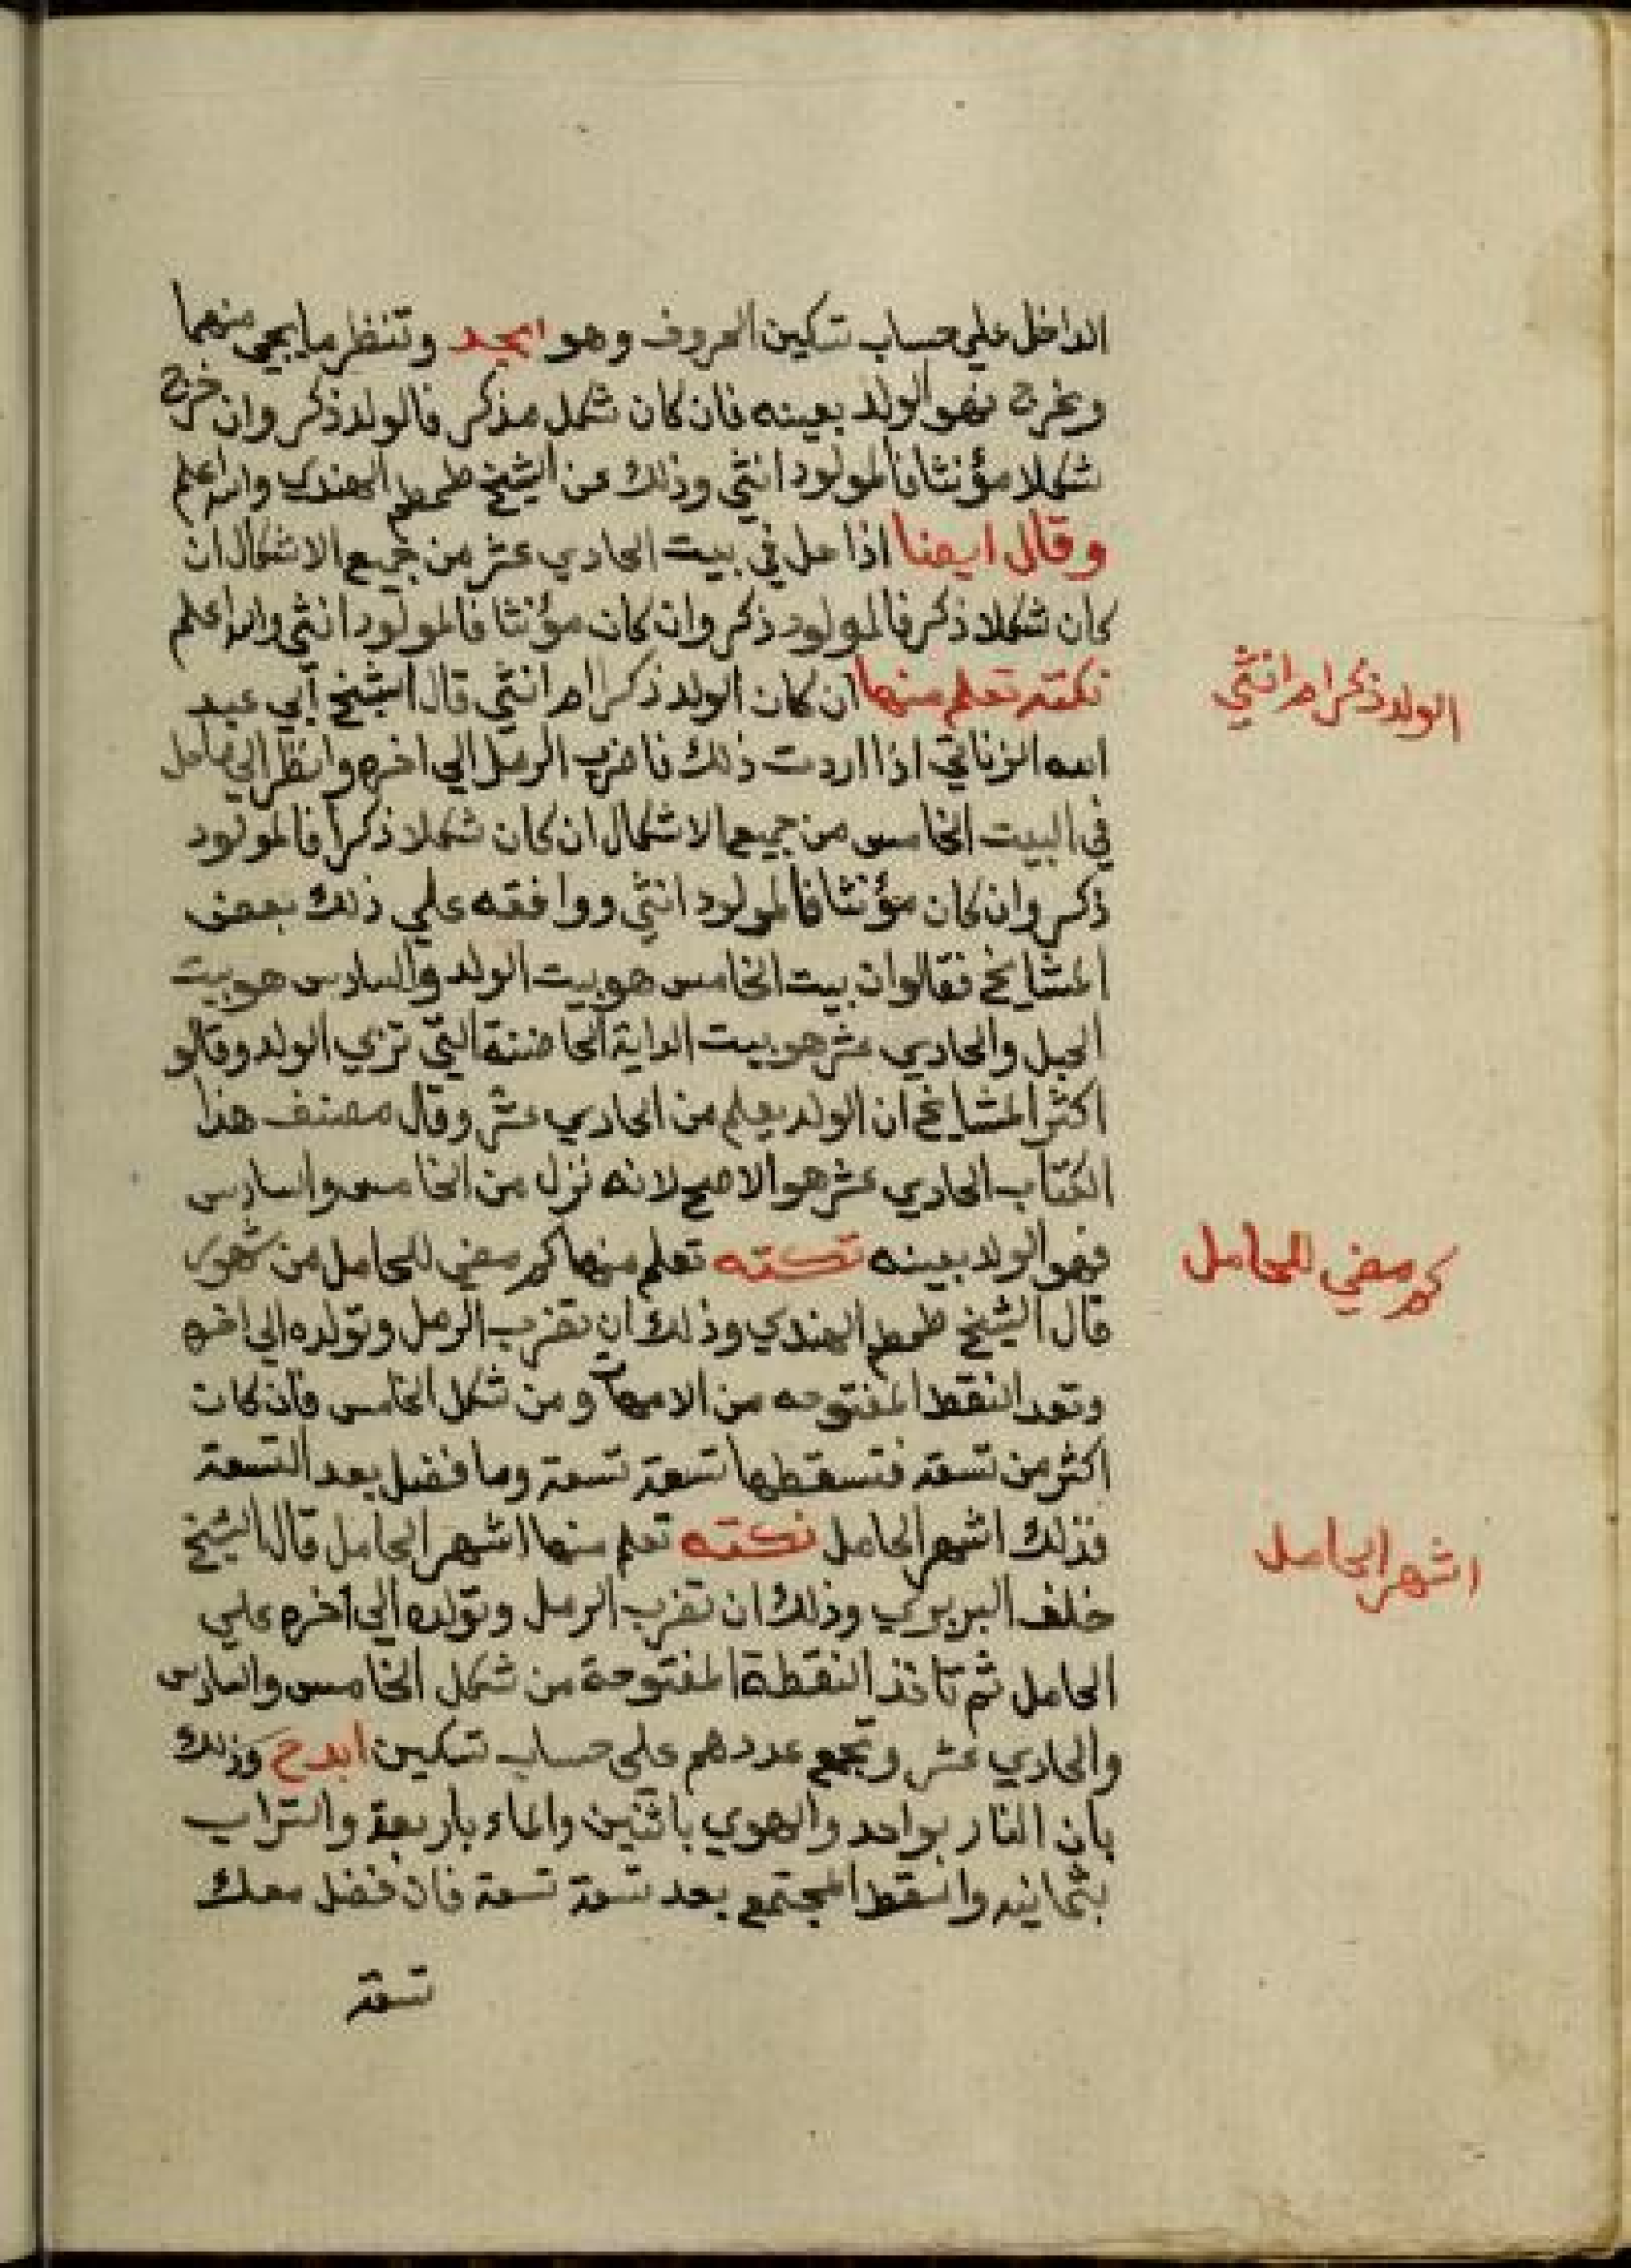 الداخل علي حساب تسكين الحروف وهو ابجد وتنظر ما يجي منهما
ويخرج فهو الولد بعينه فان كان شكل مذكر فالولد ذكر وان خرج
شكلا مؤنثا فالمولود انثي وذلك عن الشيخ طمطم الهندي والله اعلم
وقال ايضا اذا حل في بيت الحادي عشر من جميع الاشكال ان
كان شكلا ذكر فالمولود ذكر وان كان مؤنثا فالمولود انثي والله اعلم
نكتة تعلم منها ان كان الولد ذكرا ام انثي قال الشيخ أبي عبد
الولد ذكرا ام انثي
الله الزناتي اذا اردت ذلك فاضرب الرمل الي اخره وانظر الي ما حل
في البيت الخامس من جميع الاشكال ان كان شكلا ذكرا فالمولود
ذكر وان كان مؤنثا فالمولود انثي ووافقه علي ذلك بعض
المشايخ فقالوا ان بيت الخامس هو بيت الولد والسادس هو بيت
الحبل والحادي عشر هو بيت الداية الحاضنة التي تربي الولد وقالو
اكثر المشايخ ان الولد يعلم من الحادي عشر وقال مصنف هذا
الكتاب الحادي عشر هو الاصح لانه نزل من الخامس والسادس
فهو الولد بعينه نكته تعلم منها كم مضي للحامل من شهور
كم مضي للحامل
قال الشيخ طمطم الهندي وذلك ان تضرب الرمل وتولده الي اخره
وتعد النقط المفتوحه من الامهات ومن شكل الخامس فان كانت
اكثر من تسعة فتسقطها تسعة تسعة وما فضل بعد التسعة
فذلك اشهر الحامل نكته تعلم منها اشهر الحامل قال الشيخ
اشهر الحامل
خلف البربري وذلك ان تضرب الرمل وتولده الي آخره علي
الحامل ثم تاخذ النقطة المفتوحة من شكل الخامس والسادس
والحادي عشر وتجمع عددهم على حساب تسكين ابدح وذلك
بان النار بواحد والهوي باثنين والماء باربعة والتراب
بثمانيه واسقط المجتمع بعد تسعة تسعة فان فضل معك
تسعة